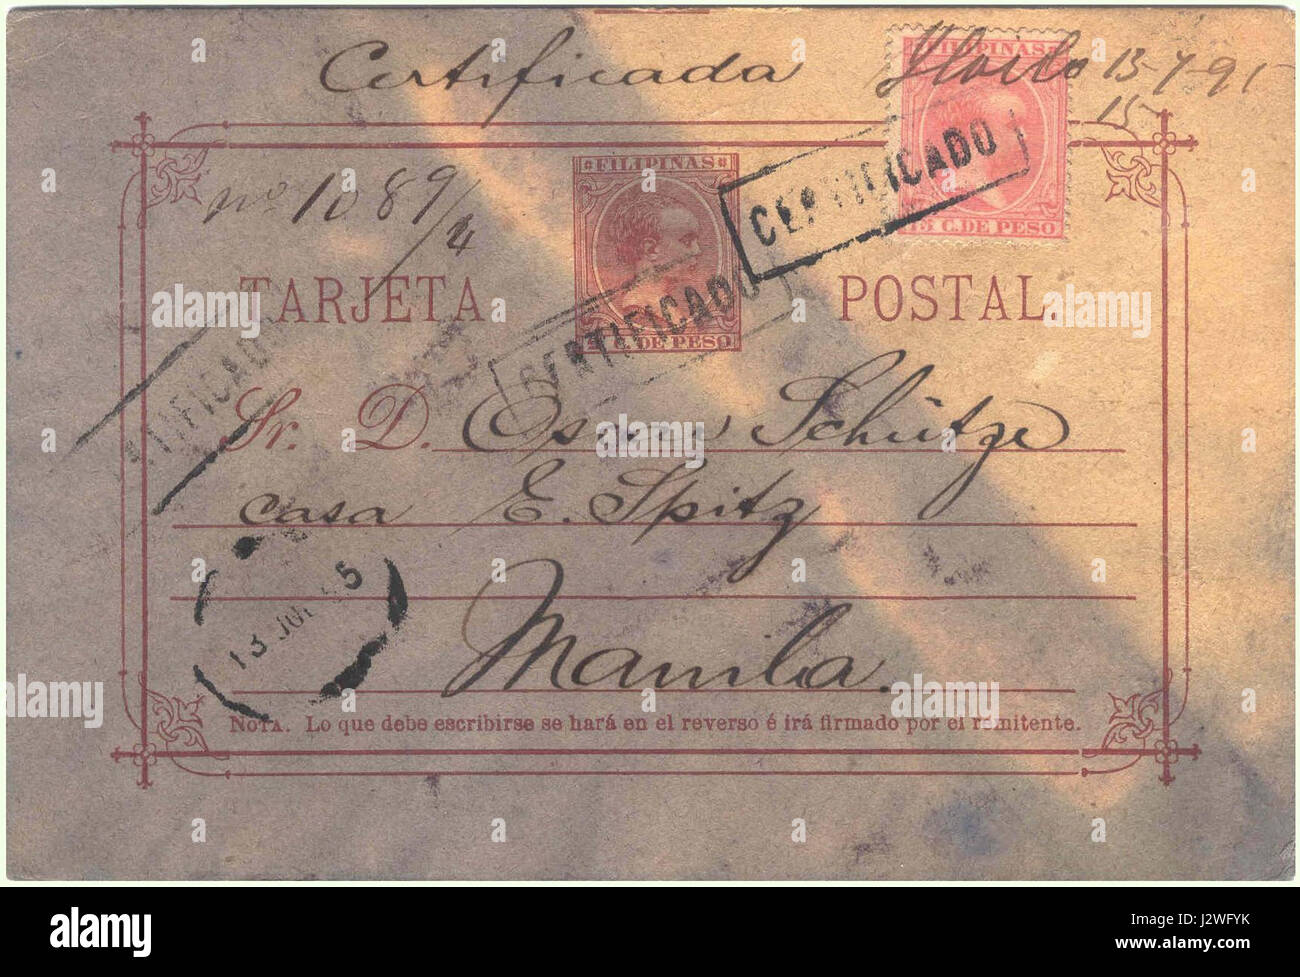 Certificada Iloilo 13-7-95
15
FILIPINAS
CERTIFICADO
Nº 1089/4
FILIPINAS
TARJETA POSTAL.
C. DE PESO
C. DE PESO
CERTIFICADO
TIFICADO
Sr. D. Osmar Schütze
casa E. Spitz
13 JUL 95
Manila.
NOTA. Lo que debe escribirse se hará en el reverso é irá firmado por el remitente.
alamy
Image ID: J2WFYK
www.alamy.com